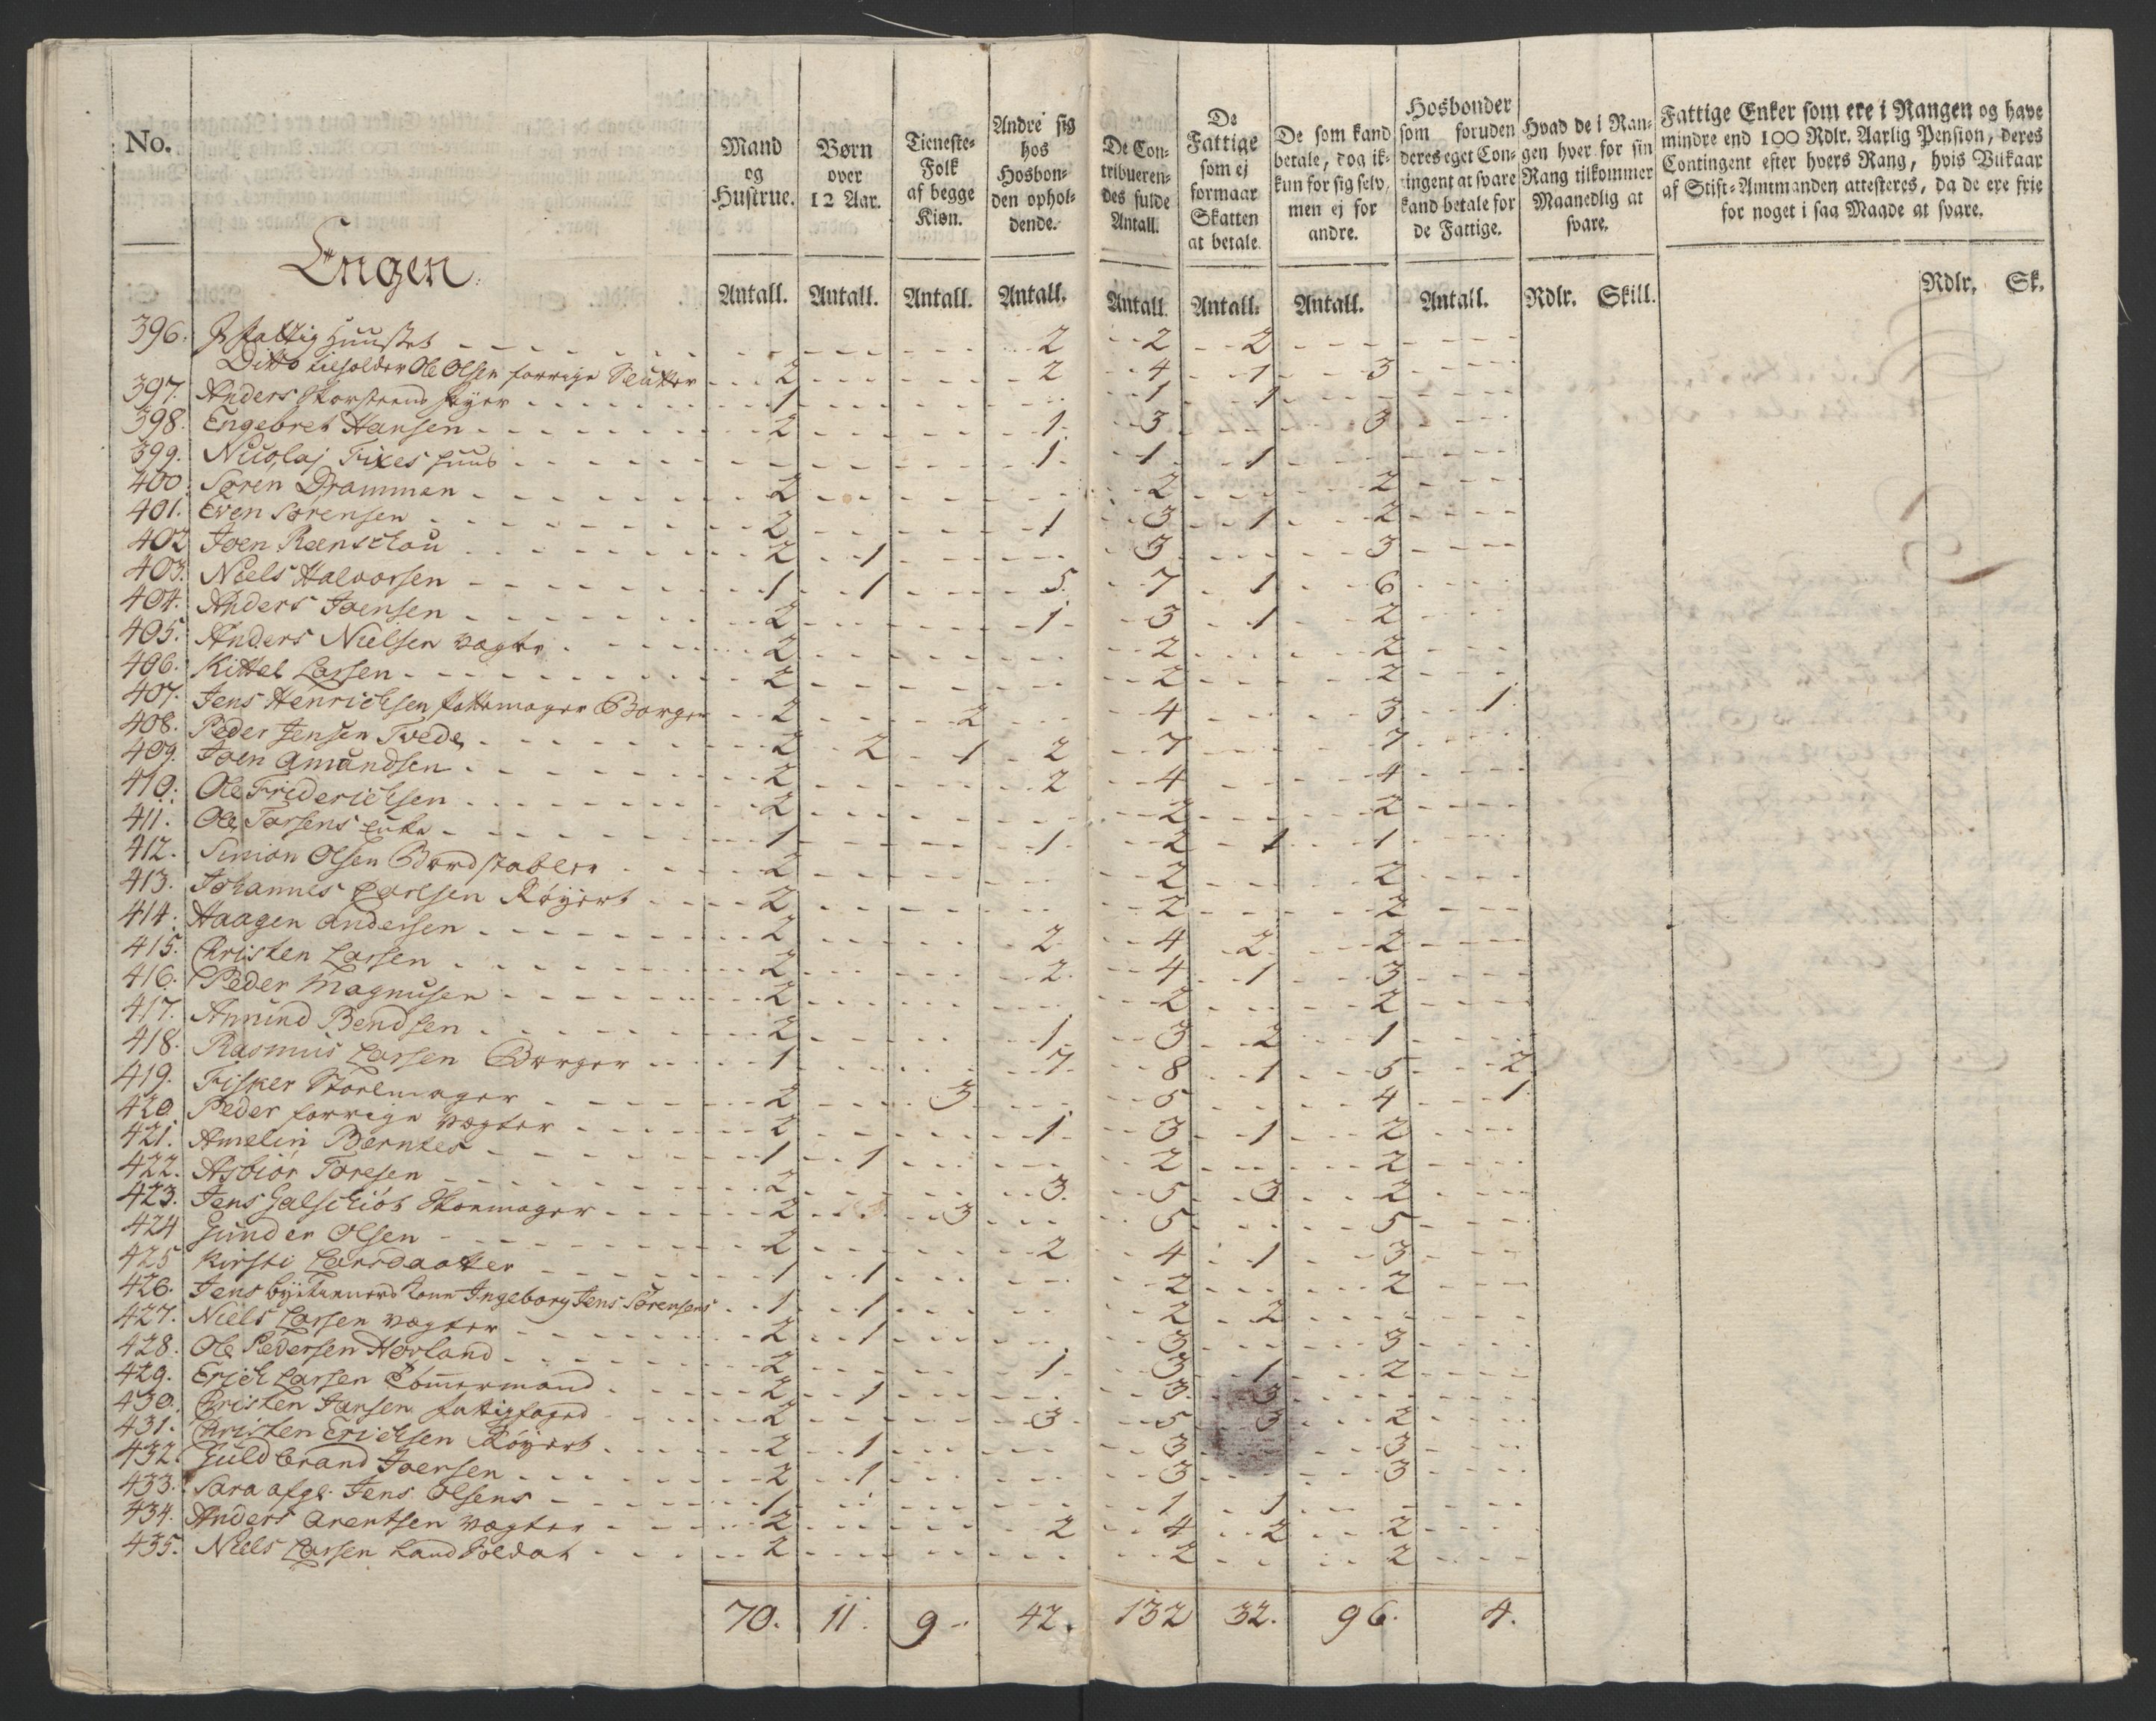 No.
Mand
og
Hustrue.
Børn
over
12 Aar.
Tieneste-
Folk
af begge
Kiøn.
Andre sig
hos
Hosbon-
den ophol-
dende.
De Con-
tribueren-
des fulde
Antall.
De
Fattige
som ej
formaar
Skatten
at betale.
De som kand
betale, dog ik-
kun for sig selv,
men ej for
andre.
Hosbonder
som foruden
deres eget Con-
tingent at svare
kand betale for
de Fattige.
Hvad de i Ran-
gen hver for sin
Rang tilkommer
Maanedlig at
svare.
Fattige Enker som ere i Rangen og have
mindre end 100 Rdlr. Aarlig Pension, deres
Contingent efter hvers Rang, hvis Vilkaar
af Stift-Amtmanden attesteres, da de ere frie
for noget i saa Maade at svare.
Engen
Antall. Antall. Antall. Antall. Antall. Antall. Antall. Antall. Rdlr. Skill. Rdlr. Sk.
396. Fattig Huuset 2 2 2
Ditto tilholder Ole Olsen forrige Slutter 2 2 4 1 3
397. Anders Skorsteens feyer 1 1 1
398. Engebret Hansen 2 1. 3 3
399. Nicolaj Fixes huus 1 1 1
400. Søren Drammen 2 2 2
401. Even Sørensen 2 1 3 1 2
402 Joen Reenschou 2 1 3 3
403. Niels Halvorsen 1 1 5. 7 1 6
404. Anders Joensen 2 1 3 1 2
405. Anders Nielsen vægter 2 2 2
406. Kittel Larsen 2 2 2
407. Jens Henrichsen Borger 2 2 4 3 1.
408. Peder Jensen Tvede 2 2 1 2 7 7
409. Joen Amundsen 2 2 4 4
410. Ole Friderichsen 2 2 2
411. Ole Torsens Enke 1 1 2 1 1
412. Simon Olsen Bordstabler 2 2 2
413. Johannes Carlsen Røyert 2 2 2
414. Haagen Andersen 2 2 4 2 2
415. Christen Larsen 2 2. 4 1 3
416. Peder Magnusen 2 2 2
417. Amund Bendsen 2 1 3 2 1
418. Rasmus Larsen Borger 1 7 8 1 5 2
419. Fisker Stoelmager 2 3 5 4 1
420. Peder forrige vægter 2 1 3 1 2
421. Amelin Berntes 1 1 2 2
422. Asbiør Toresen 2 3. 5 3 2
423. Jens Galschiøt Skoemager 2 3 5 5
424 Gunder Olsen 2 2 4 1 3
425 Kirsti Larsdaatter 1 1 2 2
426. Jens Ingeborg Jens Sørensens 1 1 2 2
427. Niels Larsen vægter 2 1 3 3
428. Ole Pedersen Hovland 2 1 3 1 2
429. Erich Larsen Tømmermand 2 1 3. 3
430. Christen Jansen fattigfoged 2 3 5 3 2
431. Christen Erichsen Røyert 2 1 3 3
432. Guldbrand Joersen 2 1 3 3
433. Sara afgl. Jens Olsens 1 1 1
434. Anders Arentsen vægter 2 2 4 2 2
435. Niels Larsen Land Soldat 2 2 2
70. 11. 9 42. 132 32. 96. 4.